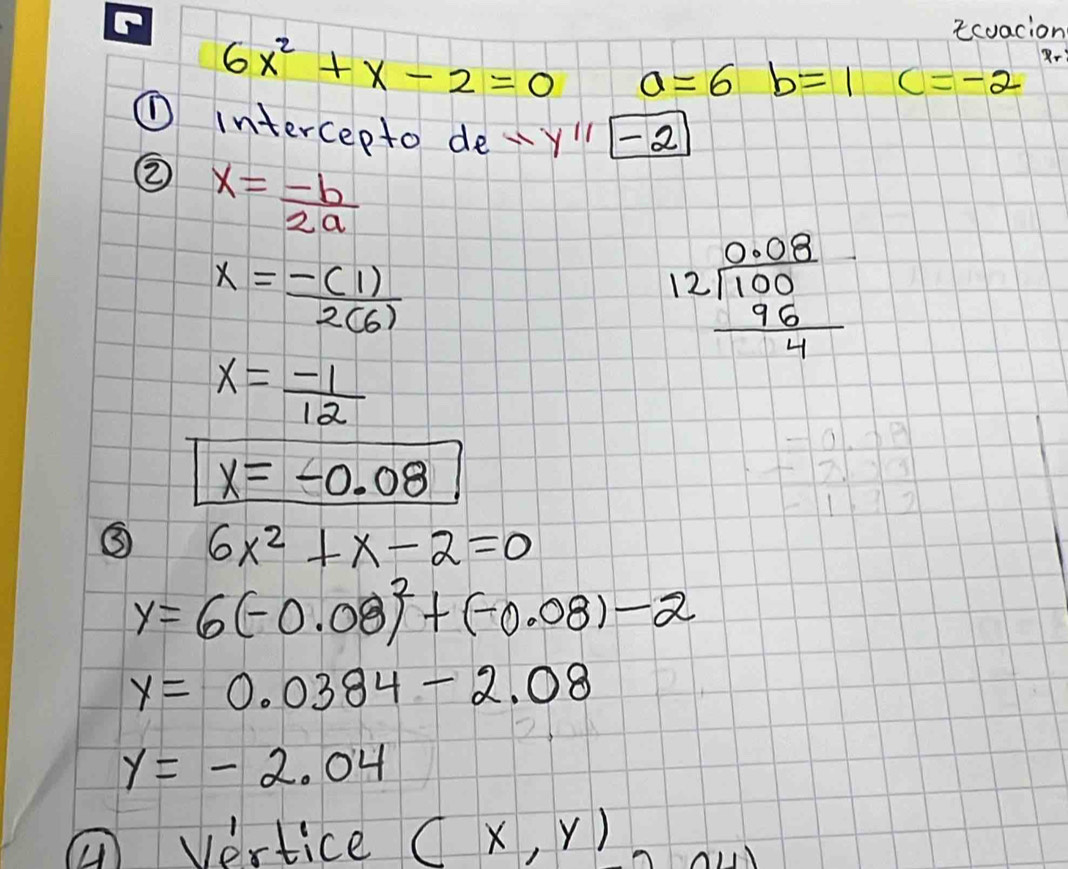 Ecuacion
6x² + x - 2 = 0    a = 6  b = 1  c = -2
① intercepto de "y" -2
② x = -b/2a
x = -(1)/2(6)
0.08
12√100
96
4
x = -1/12
x = -0.08
③ 6x² + x - 2 = 0
y = 6(-0.08)² + (-0.08) - 2
y = 0.0384 - 2.08
y = - 2.04
④ Vértice (x, y)